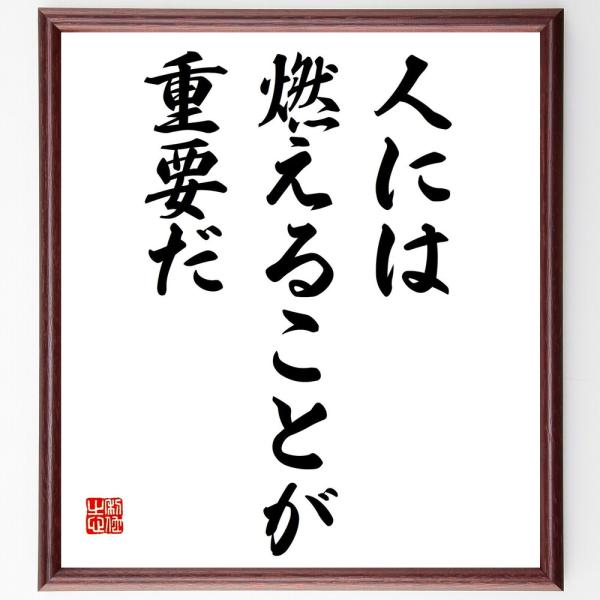 人には
燃えることが
重要だ